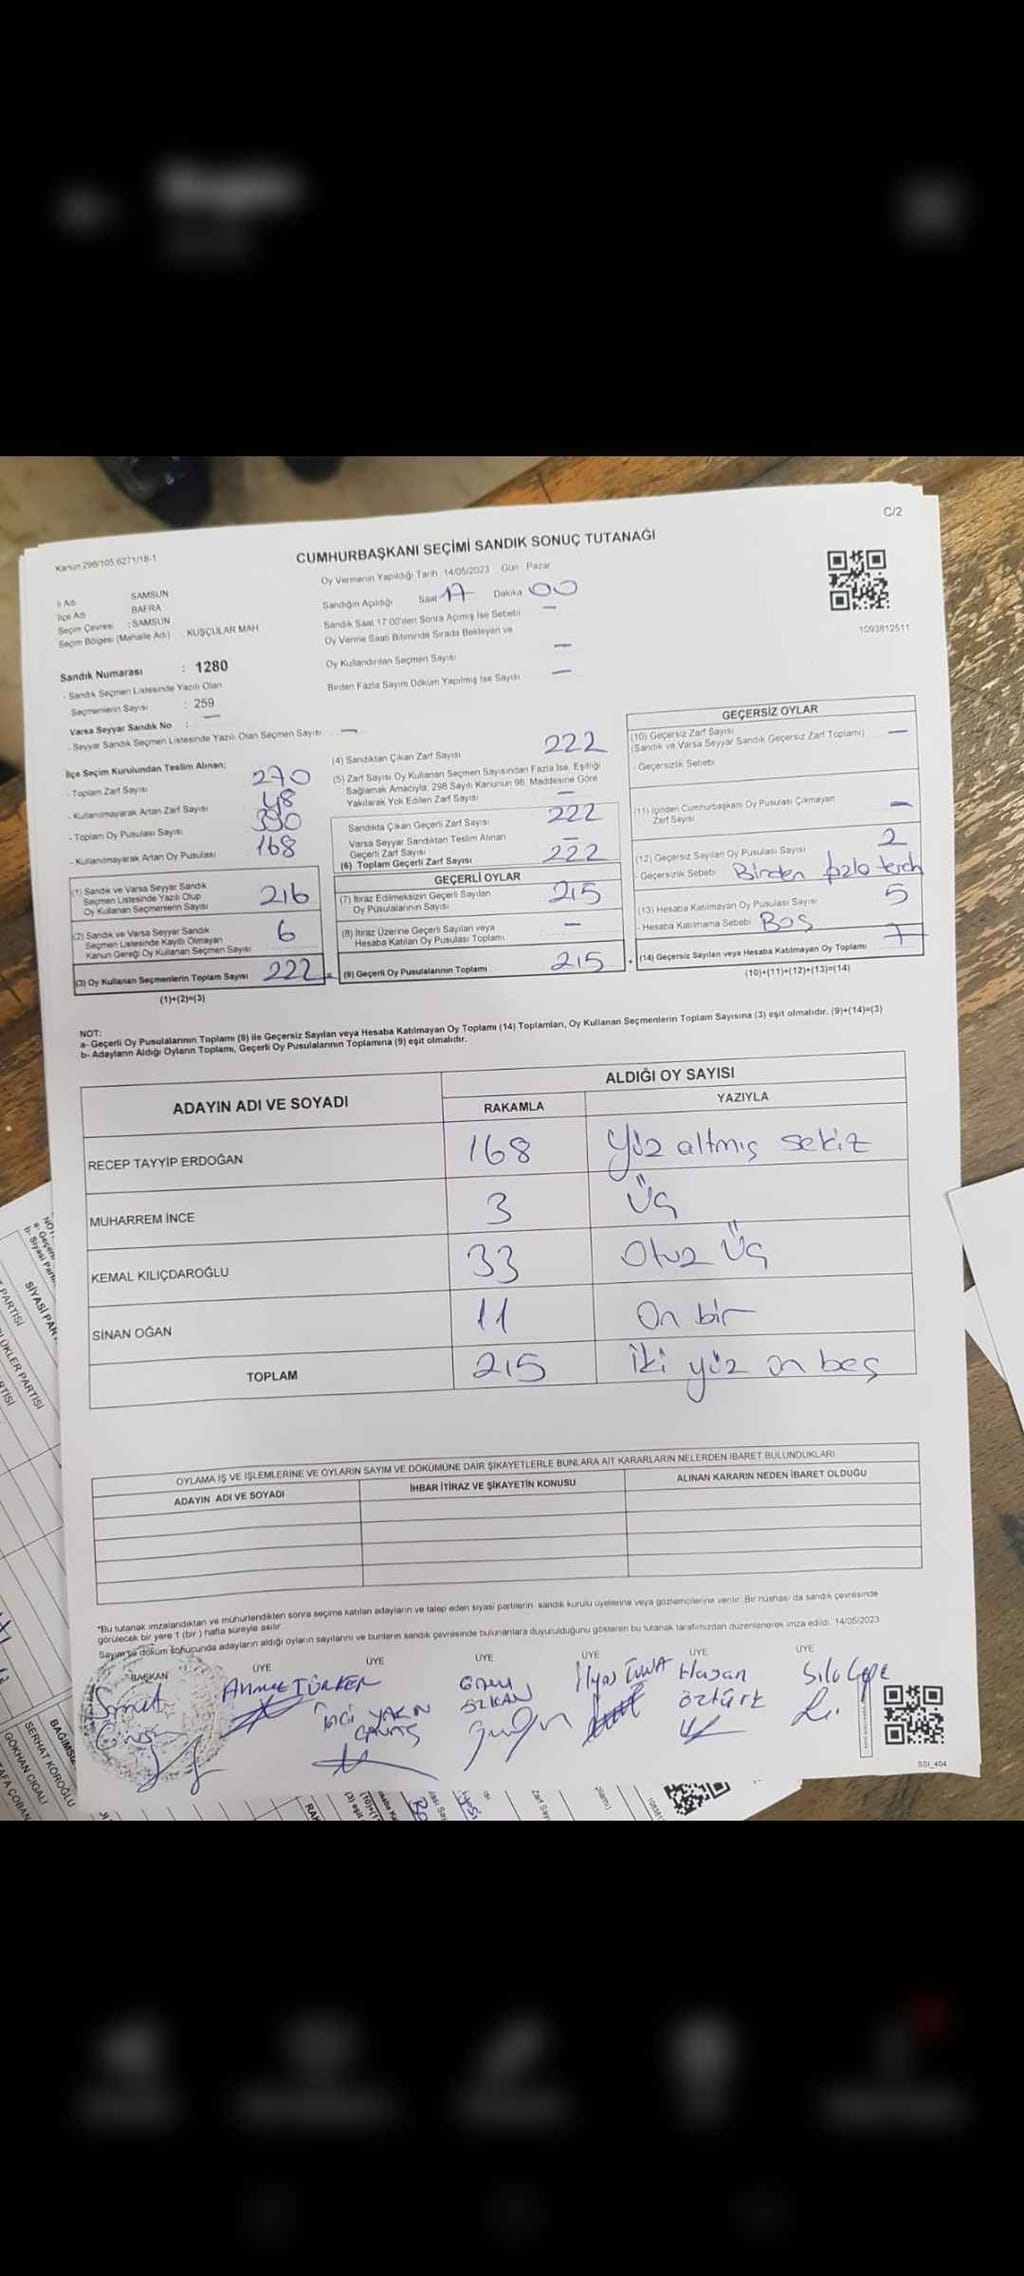 C/2
Kanun 298/105 6271/18-1
CUMHURBAŞKANI SEÇİMİ SANDIK SONUÇ TUTANAĞI
Oy Vermenin Yapıldığı Tarih : 14/05/2023 Gün : Pazar
İl Adı SAMSUN
İlçe Adı BAFRA
Seçim Çevresi : SAMSUN
Seçim Bölgesi (Mahalle Adı) KUŞÇULAR MAH
Sandığın Açıldığı Saat 17 Dakika 00
Sandık Saat 17:00'den Sonra Açılmış İse Sebebi —
Oy Verme Saati Bitiminde Sırada Bekleyen ve
Oy Kullandırılan Seçmen Sayısı —
Birden Fazla Sayım Döküm Yapılmış İse Sayısı —
1093812511
Sandık Numarası : 1280
- Sandık Seçmen Listesinde Yazılı Olan
Seçmenlerin Sayısı : 259
Varsa Seyyar Sandık No : —
- Seyyar Sandık Seçmen Listesinde Yazılı Olan Seçmen Sayısı —
İlçe Seçim Kurulundan Teslim Alınan;
- Toplam Zarf Sayısı 270
- Kullanılmayarak Artan Zarf Sayısı 48
- Toplam Oy Pusulası Sayısı
- Kullanılmayarak Artan Oy Pusulası 168
(1) Sandık ve Varsa Seyyar Sandık
Seçmen Listesinde Yazılı Olup
Oy Kullanan Seçmenlerin Sayısı 216
(2) Sandık ve Varsa Seyyar Sandık
Seçmen Listesinde Kayıtlı Olmayan
Kanun Gereği Oy Kullanan Seçmen Sayısı 6
(3) Oy Kullanan Seçmenlerin Toplam Sayısı 222
(1)+(2)=(3)
(4) Sandıktan Çıkan Zarf Sayısı 222
(5) Zarf Sayısı Oy Kullanan Seçmen Sayısından Fazla İse, Eşitliği
Sağlamak Amacıyla, 298 Sayılı Kanunun 98. Maddesine Göre
Yakılarak Yok Edilen Zarf Sayısı —
Sandıkta Çıkan Geçerli Zarf Sayısı 222
Varsa Seyyar Sandıktan Teslim Alınan
Geçerli Zarf Sayısı —
(6) Toplam Geçerli Zarf Sayısı 222
GEÇERLİ OYLAR
(7) İtiraz Edilmeksizin Geçerli Sayılan
Oy Pusulalarının Sayısı 215
(8) İtiraz Üzerine Geçerli Sayılan veya
Hesaba Katılan Oy Pusulası Toplamı —
(9) Geçerli Oy Pusulalarının Toplamı 215
GEÇERSİZ OYLAR
(10) Geçersiz Zarf Sayısı
(Sandık ve Varsa Seyyar Sandık Geçersiz Zarf Toplamı) —
- Geçersizlik Sebebi
(11) İçinden Cumhurbaşkanı Oy Pusulası Çıkmayan
Zarf Sayısı —
(12) Geçersiz Sayılan Oy Pusulası Sayısı 2
- Geçersizlik Sebebi Birden
(13) Hesaba Katılmayan Oy Pusulası Sayısı 5
- Hesaba Katılmama Sebebi Boş
(14) Geçersiz Sayılan veya Hesaba Katılmayan Oy Toplamı 7
(10)+(11)+(12)+(13)=(14)
NOT:
a- Geçerli Oy Pusulalarının Toplamı (9) ile Geçersiz Sayılan veya Hesaba Katılmayan Oy Toplamı (14) Toplamları, Oy Kullanan Seçmenlerin Toplam Sayısına (3) eşit olmalıdır. (9)+(14)=(3)
b- Adayların Aldığı Oyların Toplamı, Geçerli Oy Pusulalarının Toplamına (9) eşit olmalıdır.
ADAYIN ADI VE SOYADI ALDIĞI OY SAYISI
RAKAMLA YAZIYLA
RECEP TAYYİP ERDOĞAN 168 Yüz altmış sekiz
MUHARREM İNCE 3 Üç
KEMAL KILIÇDAROĞLU 33 Otuz Üç
SİNAN OĞAN 11 On bir
TOPLAM 215 İki yüz on beş
OYLAMA İŞ VE İŞLEMLERİNE VE OYLARIN SAYIM VE DÖKÜMÜNE DAİR ŞİKAYETLERLE BUNLARA AİT KARARLARIN NELERDEN İBARET BULUNDUKLARI
ADAYIN ADI VE SOYADI İHBAR İTİRAZ VE ŞİKAYETİN KONUSU ALINAN KARARIN NEDEN İBARET OLDUĞU
*Bu tutanak imzalandıktan ve mühürlendikten sonra seçime katılan adayların ve talep eden siyasi partilerin sandık kurulu üyelerine veya gözlemcilerine verilir. Bir nüshası da sandık çevresinde
görülecek bir yere 1 (bir) hafta süreyle asılır
Sayım ve döküm sonucunda adayların aldığı oyların sayılarını ve bunların sandık çevresinde bulunanlara duyurulduğunu gösteren bu tutanak tarafımızdan düzenlenerek imza edildi. 14/05/2023
BAŞKAN ÜYE ÜYE ÜYE ÜYE ÜYE ÜYE
Ahmet TÜRKER
İnci YAKIN
ÖZKAN
İlyas
Hasan
öztürk
SSI_404
SİYASİ PAR
SERHAT KÖROĞLU
GÖKHAN CIĞALI